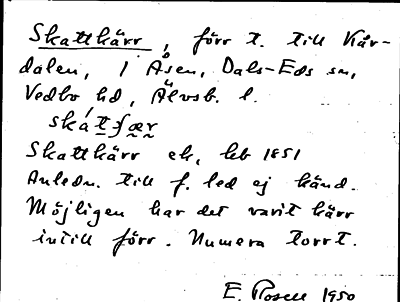 Skattkärr, förr t. till Kår-
dalen, 1 Åsen, Dals-Eds sn,
Vedbo hd, Älvsb. l.
skát ʃær
Skattkärr ek, hb 1851
Anledn. till f. led ej känd.
Möjligen har det varit kärr
intill förr. Numera torrt.
E. Rosell 1950